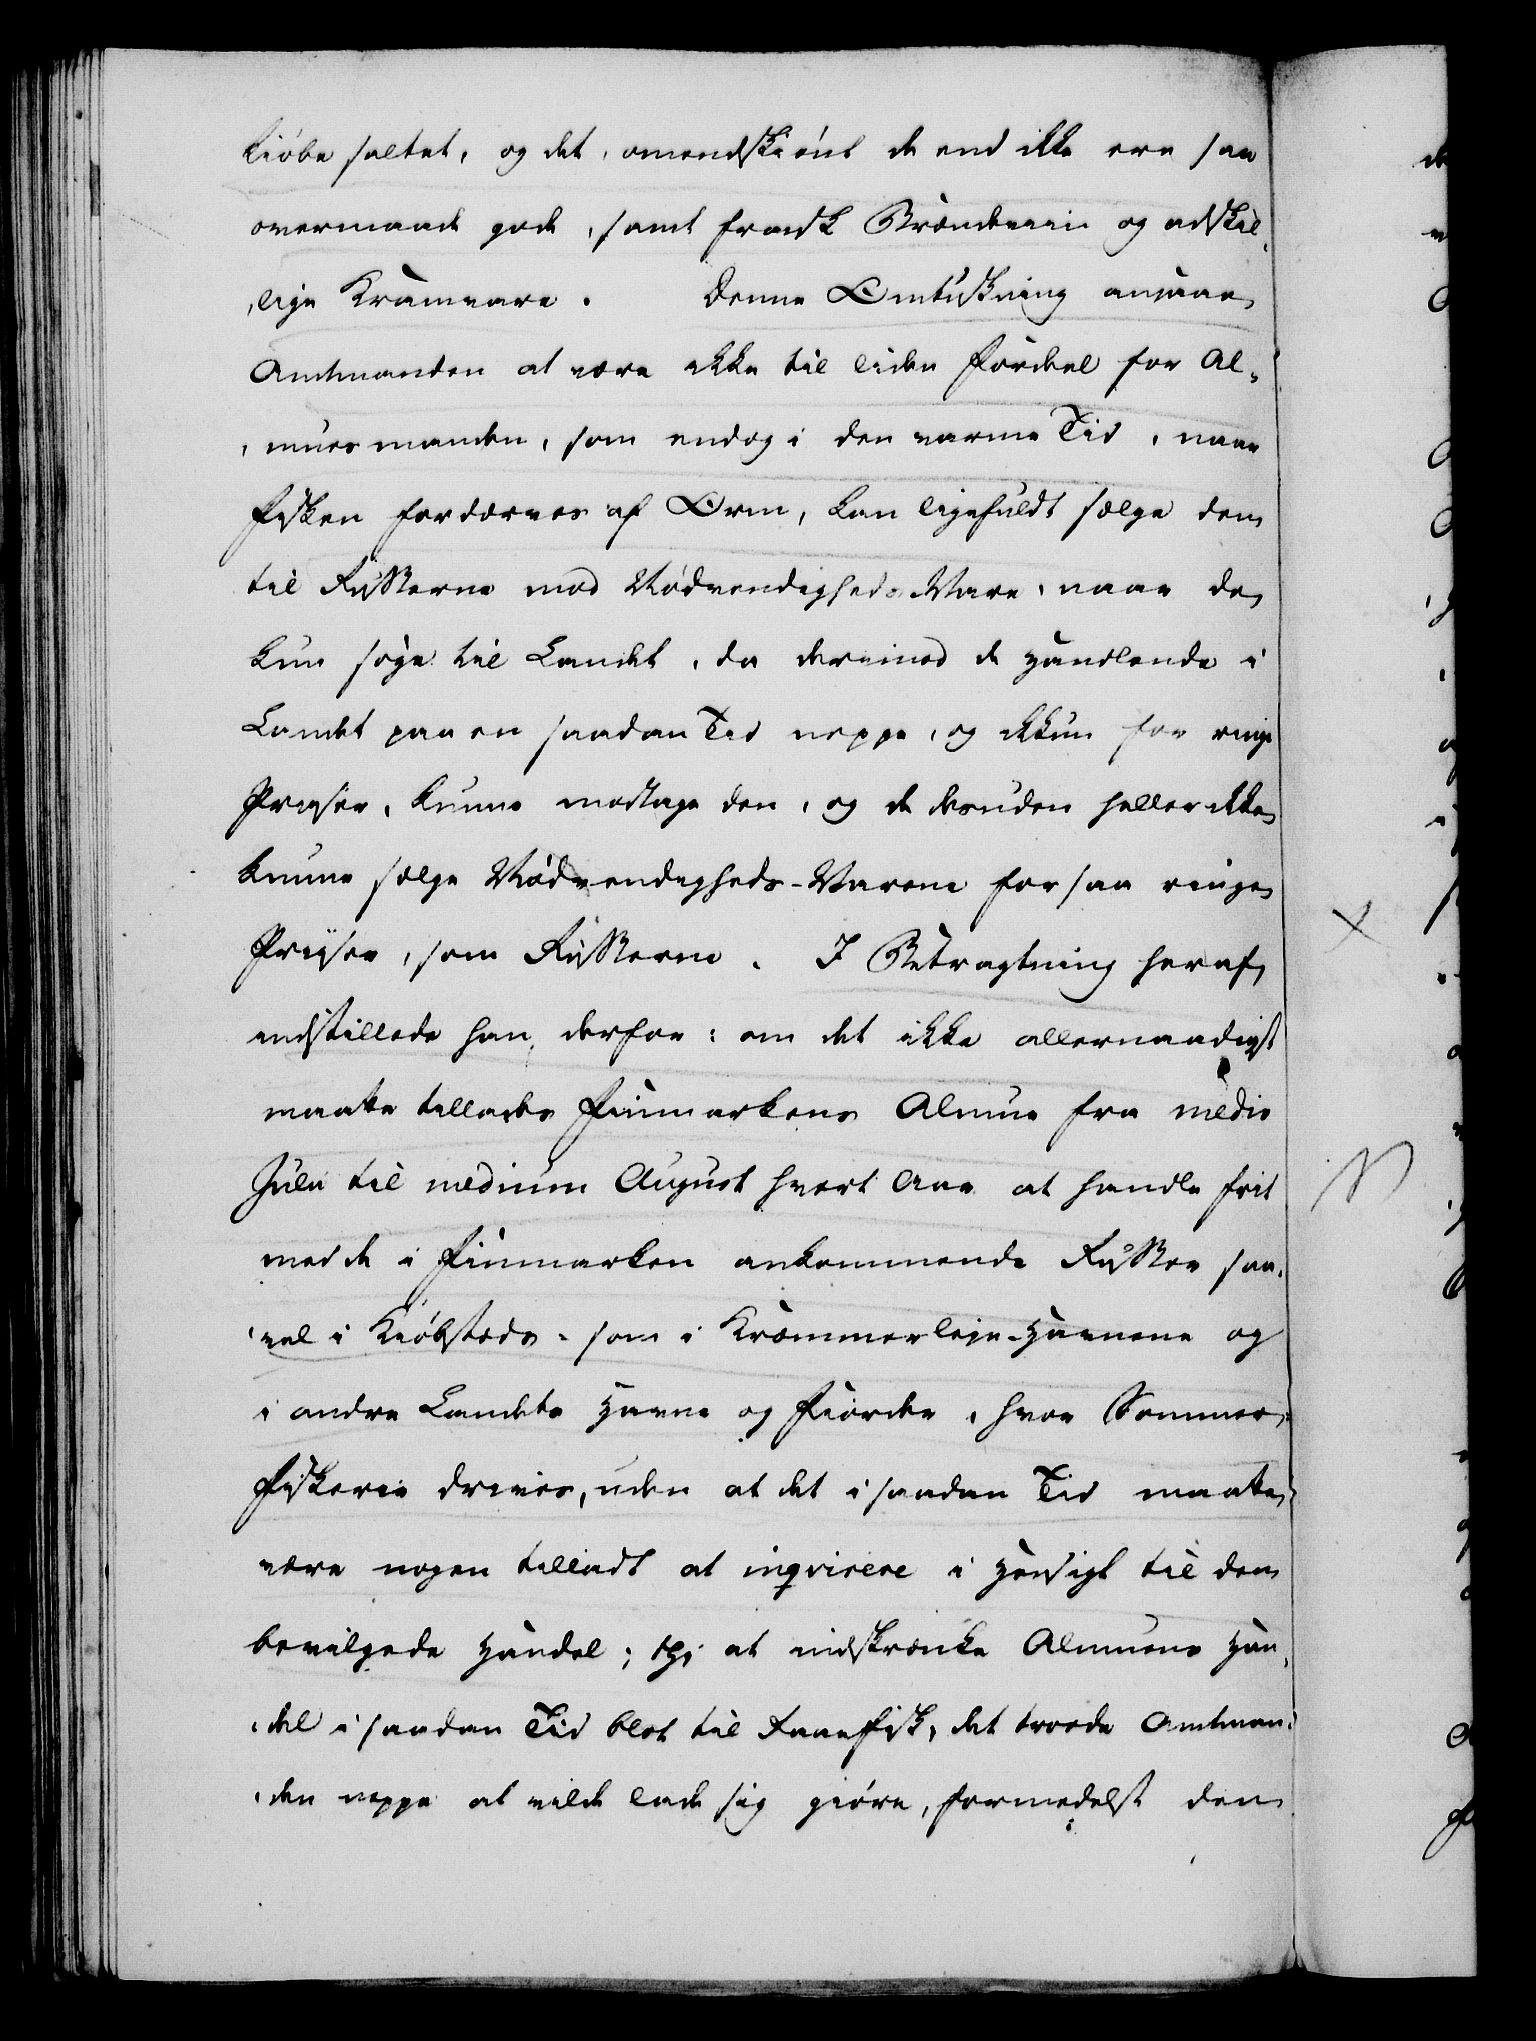 kiøbe saltet, og det, omendskiønt de end ikke ere saa
overmaade gode, samt fransk Brændeviin og adskil-
lige Kramvare. Denne Omtuskning ansaae
Amtmanden at være ikke til liden Fordeel for Al-
muesmanden, som endog i den varme Tid, naar
Fisken fordærves af Orm, kan ligefuldt sælge den
til Russerne mod Nødvendigheds Vare, naar de
kun søge til Landet, da derimod de Handlende i
Landet paa en saadan Tid neppe, og ikkun for ringe
Priser, kunne modtage den, og de desuden heller ikke
kunne sælge Nødvendigheds-Varene for saa ringe
Priiser, som Russerne. I Betragtning heraf
indstillede han derfor: om det ikke allernaadigst
maatte tillades Finmarkens Almue fra medio
Julii til medium August hvert Aar at handle frit
med de i Finmarken ankommende Russer saa-
vel i Kiøbstæds- som i Kræmmerleje-Havnene og
i andre Landets Havne og Fiorder, hvor Sommer-
Fiskerie drives, uden at det i saadan Tid maatte
være nogen tilladt at inqvirere i Hensigt til den
bevilgede Handel; thi at indskrænke Almuens Han-
del i saadan Tid blot til Raaefisk, det troede Amtman-
den neppe at vilde lade sig giøre, formedelst den